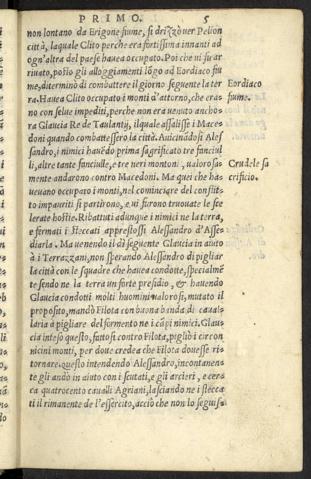 PRIMO. 5
non lontano da Erigone fiume, si drizzò uer Pelion
città, laquale Clito perche era fortissima innanti ad
ogn'altra del paese hauea occupato. Poi che ui fu ar
riuato, posto gli alloggiamenti lōgo ad Eordiaco fiu
me, ditermino di combattere il giorno seguente la ter
ra. Hauea Clito occupato i monti d'attorno, che era-
no con selue impediti, perche non era uenuto anchos
ra Glaucia Re de Taulantij, ilquale assalisse i Mace-
doni quando combattessero la città. Auicinādosi Ales
sandro, i nimici hauēdo prima sagrificato tre fanciul
li, altre tante fanciulle, e tre neri montoni, ualorosa-
mente andarono contro Macedoni. Ma quei che ha-
ueuano occupato i monti, nel cominciare del conflit-
to impauriti si partirono, e ui furono truouate le sce
lerate hostie. Ributtati adunque i nimici ne la terra,
e fermati i steccati apprestossi Alessandro d'Asse-
diarla. Ma uenendo il dì seguente Glaucia in aiuto
à i Terrazzani, non sperando Alessandro di pigliar
la città con le squadre che hauea condotte, specialmē
te sendo ne la terra un forte presidio, & hauendo
Glaucia condotti molti huomini ualorosi, mutato il
proposito, mandò Filota con buona banda di caual-
laria à pigliare del formento ne i cāpi nimici. Glau-
cia inteso questo, fattosi contro Filota, pigliò i circon
nicini monti, per doue credea che Filota douesse ri-
tornare. questo intendendo Alessandro, incontanen-
te gli andò in aiuto con i scutati, e gli arcieri, e cer-
ca quatrocento caualli Agriani, lasciando ne i stecca
ti il rimanente de l'essercito, acciò che non lo seguis-
Eordiaco
fiume.
Crudele sa
crificio.